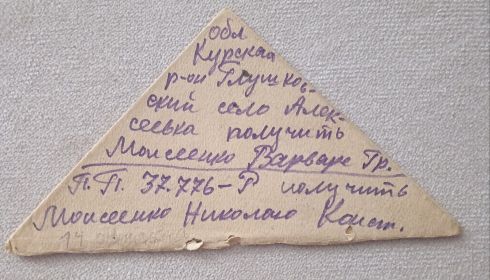 обл
Курская
р-он Глушков-
ский село Алек-
сеевка получить
Моисеенко Варваре Гр.
П.П. 37.776-Р получить
Моисеенко Николаю Конст.